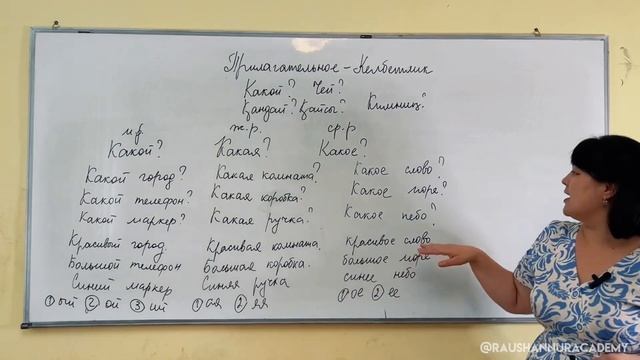 Прилагательное - Келбетлик
Какой? Чей?
Қандай? Қайсы? Кимниң?
м.р. ж.р. ср.р
Какой? Какая? Какое?
Какой город? Какая комната? Какое слово?
Какой телефон? Какая коробка? Какое море?
Какой маркер? Какая ручка? Какое небо?
Красивый город Красивая комната. красивое слово
Большой телефон Большая коробка. большое море
Синий маркер Синяя ручка синее небо
① ый ② ой ③ ий ① ая ② яя ① ое ② ее
@RAUSHANNURACADEMY